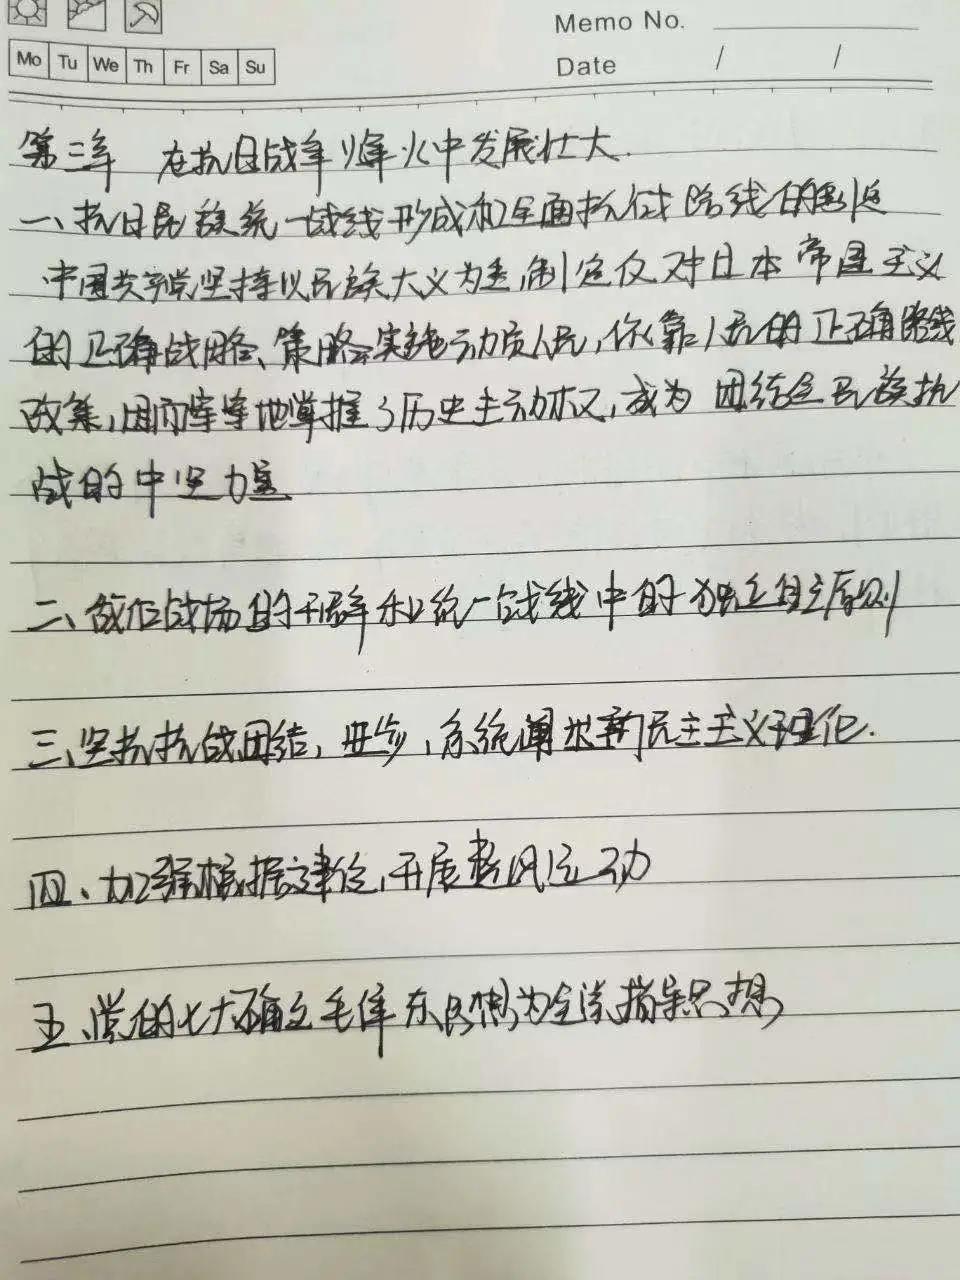 Memo No.
Mo Tu We Th Fr Sa Su
Date / /
第三章 在抗日战争烽火中发展壮大.
一、抗日民族统一战线形成和全面抗战路线的制定
中国共产党坚持以民族大义为重,制定仅对日本帝国主义
的正确战略、策略实施动员人民,依靠人民的正确路线
政策,因而牢牢地掌握了历史主动权,成为团结全民族抗
战的中坚力量
二、敌后战场的开辟和统一战线中的独立自主原则
三、坚持抗战团结,进步,系统阐述新民主主义理论.
四、加强根据建设,开展整风运动
五、党的七大确立毛泽东思想为全党指导思想